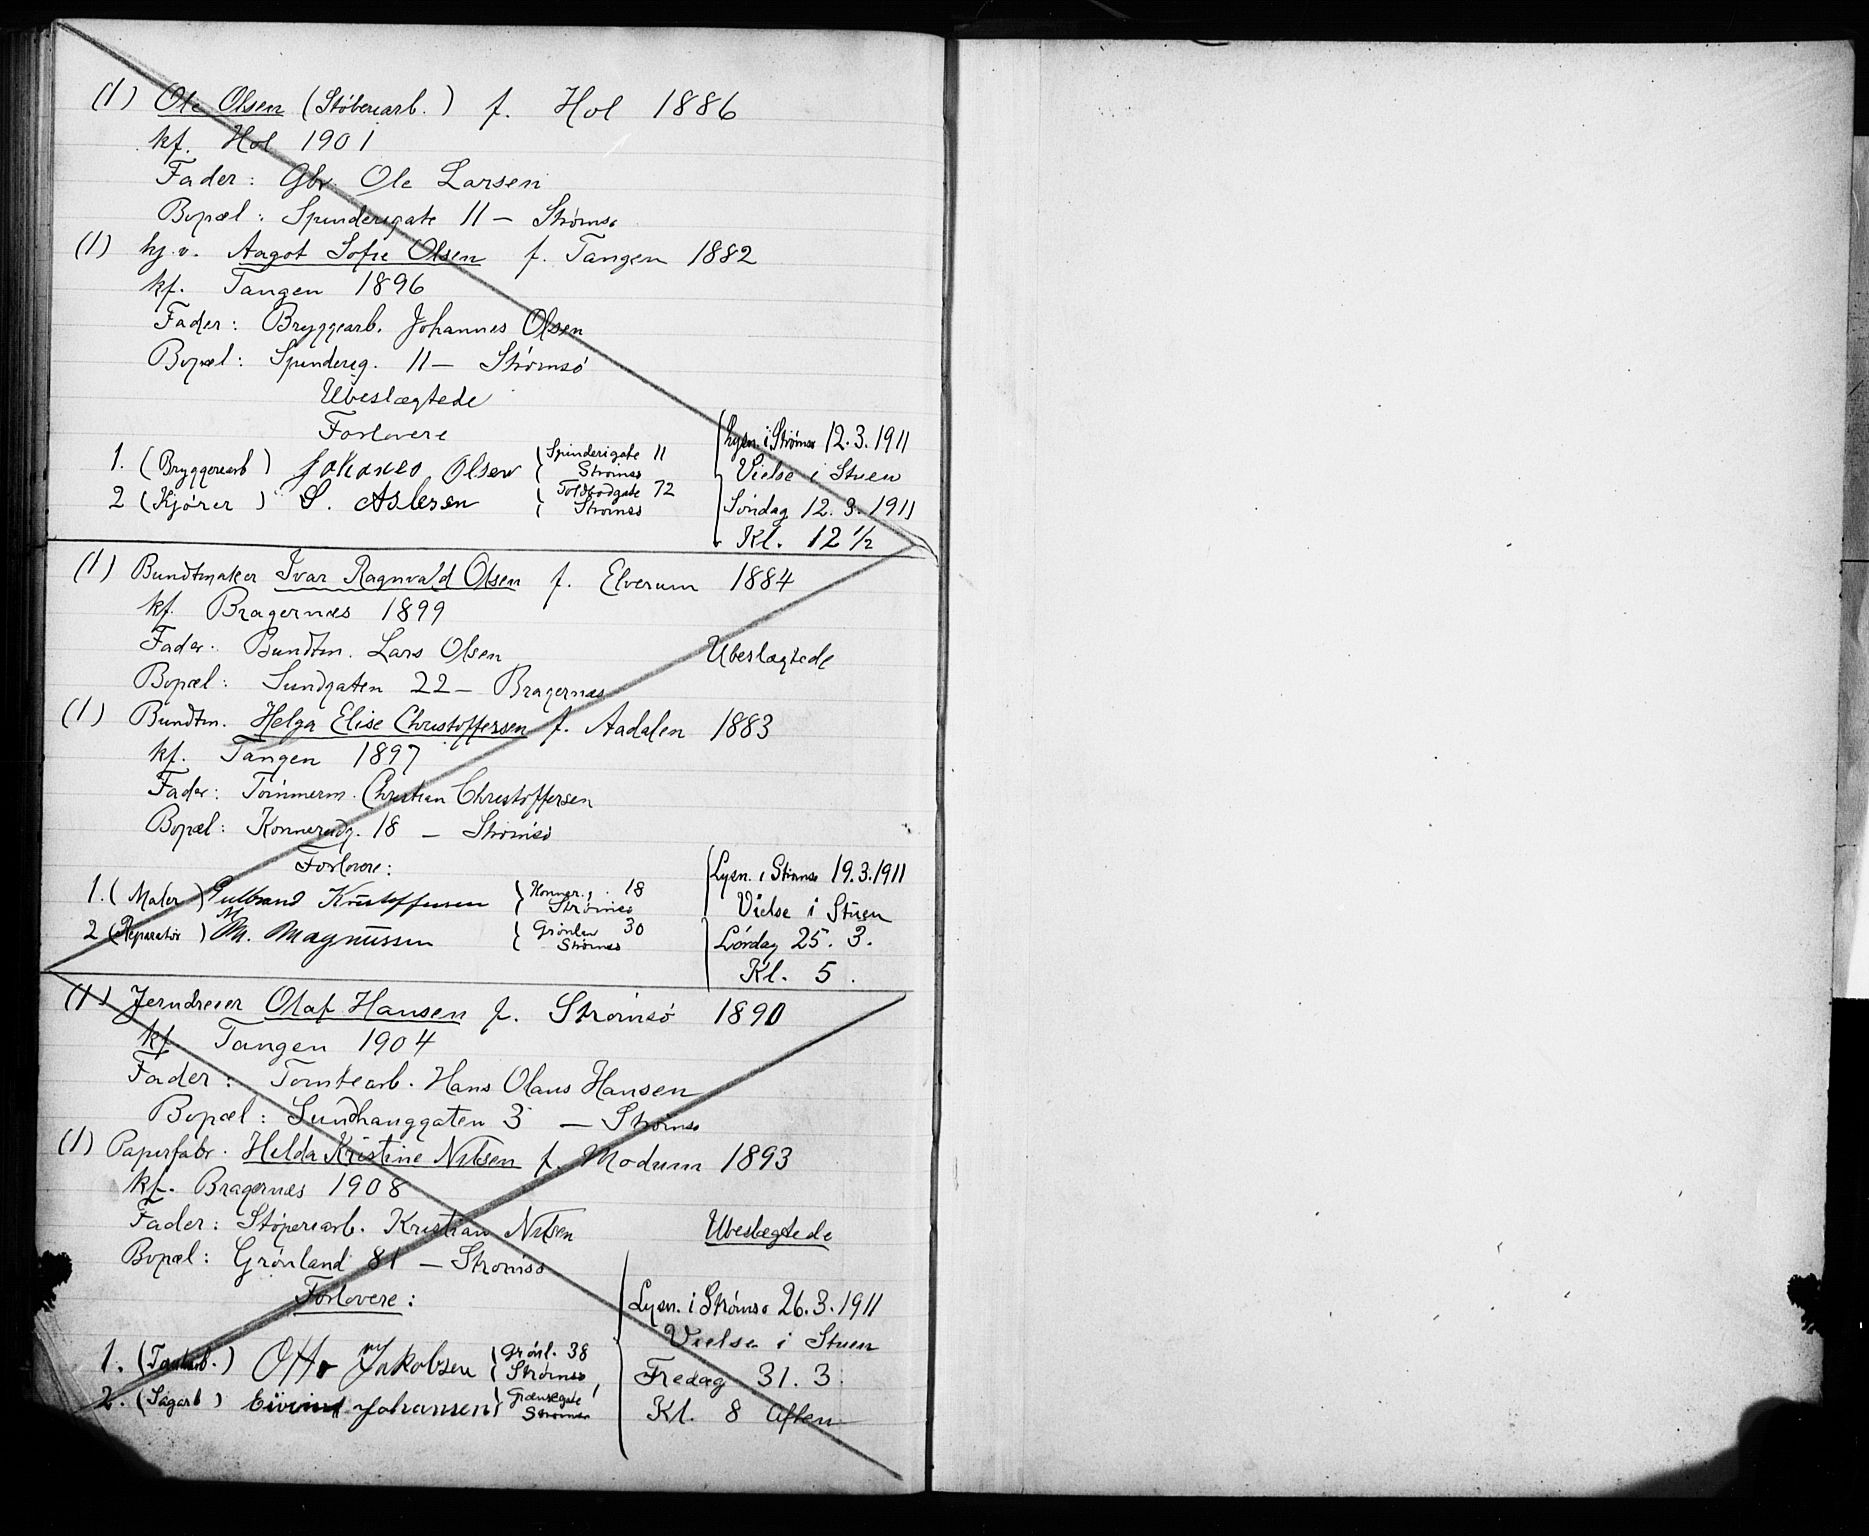 (1) Ole Olsen (Støberiarb.) f. Hol 1886
kf. Hol 1901
Fader: Gbr. Ole Larsen
Bopæl: Spinderigate 11 – Strømsø
(1) hj.v. Aagot Sofie Olsen f. Tangen 1882
kf. Tangen 1896
Fader: Bryggearb. Johannes Olsen
Bopæl: Spinderig. 11 – Strømsø
Ubeslægtede
Forlovere
1. (Bryggeriarb) Johanes Olsen { Spinderigate 11 Strømsø
2 (Kjører) S. Aslesen { Toldbodgate 72 Strømsø
Lysn. i Strømsø 12.3.1911
Vielse i Stuen
Søndag 12.3.1911
Kl. 12 1/2
(1) Bundtmaker Ivar Ragnvald Olsen f. Elverum 1884
kf. Bragernæs 1899
Fader: Bundtm. Lars Olsen Ubeslægtede
Bopæl: Sundgaten 22 – Bragernæs
(1) Bundtm. Helga Elise Christoffersen f. Aadalen 1883
kf. Tangen 1897
Fader: Tømmerm. Christian Christoffersen
Bopæl: Konnerudg. 18 – Strømsø
Forlovere:
1. (Maler) Gulbrand Kristoffersen { Konner.g. 18 Strømsø
2 (Reparatør) M. Magnussen { Grønlan 30 Strømsø
Lysn. i Strømsø 19.3.1911
Vielse i Stuen
Lørdag 25. 3.
Kl. 5.
(1) Jerndreier Olaf Hansen f. Strømsø 1890
kf. Tangen 1904
Fader: Tomtearb. Hans Olaus Hansen
Bopæl: Sundhauggaten 3 – Strømsø
(1) Papirfabr. Hilda Kristine Nilsen f. Modum 1893
kf. Bragernæs 1908
Fader: Støperiarb. Kristian Nilsen Ubeslægtede
Bopæl: Grønland 81 – Strømsø
Forlovere:
1. (Tomtarb.) Otto Jakobsen { Grønl. 38 Strømsø
2. (Sagarb) Eivind Johansen { Grænsegate 1 Strømsø
Lysn. i Strømsø 26.3.1911
Vielse i Stuen
Fredag 31. 3.
Kl. 8 Aften